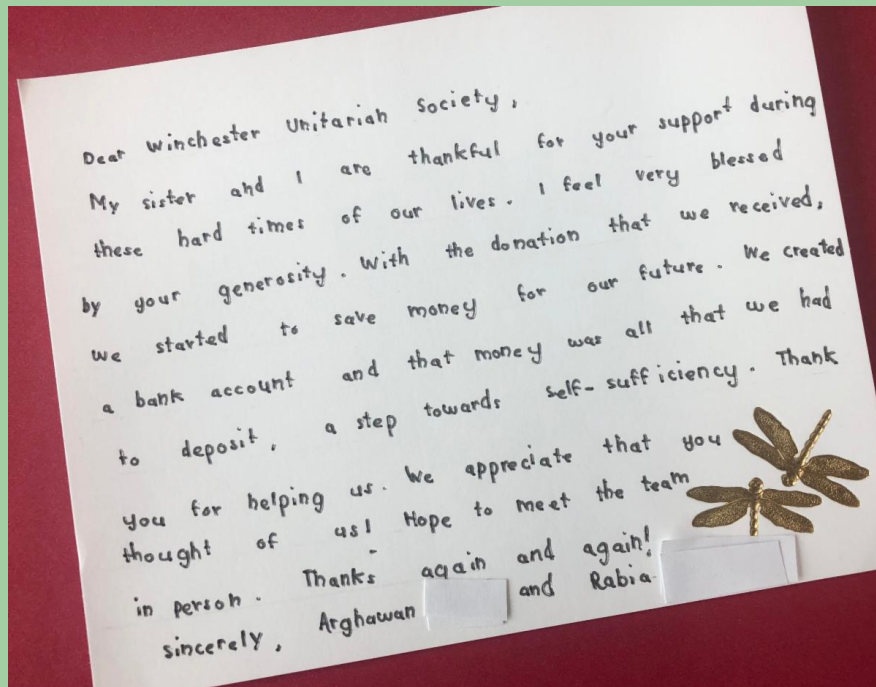 Dear Winchester Unitarian Society,
My sister and I are thankful for your support during
these hard times of our lives. I feel very blessed
by your generosity. With the donation that we received,
we started to save money for our future. We created
a bank account and that money was all that we had
to deposit, a step towards self-sufficiency. Thank
you for helping us. We appreciate that you
thought of us! Hope to meet the team
in person. Thanks again and again!
sincerely, Arghawan and Rabia